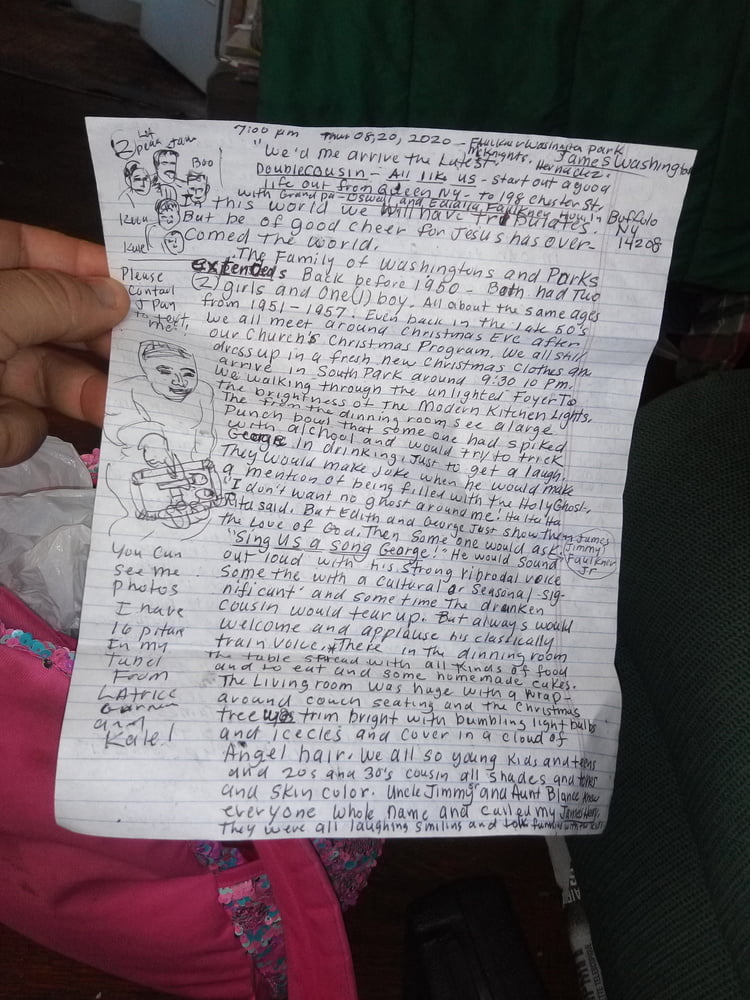 7:00 pm Thur 08,20, 2020 - Faulkner Washington Park
McKnights, Hernadez. James Washington
"We'd me arrive the Latest.
Doublecousin - All like us - start out a good
life out from Queen NY - to 198 Chester St,
with Grandpa - Oswal and
In this world we will have tributates. Buffalo
But be of good cheer for Jesus has over- NY
comed the world. 14208
The Family of Washingtons and Parks
extended Back before 1950 - Both had Two
(2) girls and one (1) boy. All about the same ages
from 1951 - 1957. Even back in the late 50's
we all meet around Christmas Eve after
our Church's Christmas Program. We all still
dress up in a fresh new Christmas Clothes an
arrive in South Park around 9:30 10 PM.
We walking through the unlighted Foyer To
the brightness of The Modern Kitchen Lights.
The from the dinning room see a large
Punch bowl that some one had spiked
with alchool and would try to trick
George in drinking. Just to get a laugh.
They would make joke when he would make
a mention of being filled with the Holy Ghost.
"I don't want no ghost around me! Ha Ha Ha
Rita said. But Edith and George Just show them
the Love of God. Then Some one would ask
"Sing US a song George!" He would sound
out loud with his strong vibrodal voice
Some the with a cultural or Seasonal sig-
nificant and some time The drunken
cousin would tear up. But always would
welcome and applause his classically
train voice. There in the dinning room
the table spread with all kinds of food
and to eat and some homemade cakes.
The Living room was huge with a wrap-
around couch seating and the Christmas
tree was trim bright with bumbling light bulbs
and icecles and cover in a cloud of
Angel hair. We all so young kids and teens
and 20s and 30's cousin all shades and tones
and skin color. Uncle Jimmy and Aunt Blance know
everyone whole name and called my James Henry.
They were all laughing smiling and
James
Jimmy
Faulkner
Jr
Boo
Kale
Please
Contait
J Pan
to text
me!
You can
see me
photos
I have
16 pitar
In my
Tabel
From
LAtrice
and
Kale!